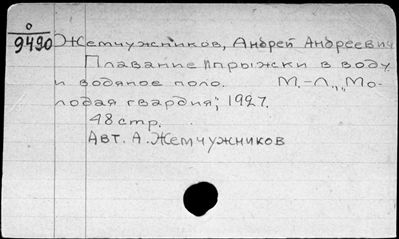 0
9420
Жемчужников, Андрей Андреевич
Плавание и прыжки в воду
и водяное поло. М.-Л., „Мо-
лодая гвардия", 1927.
48 стр.
Авт. А. Жемчужников